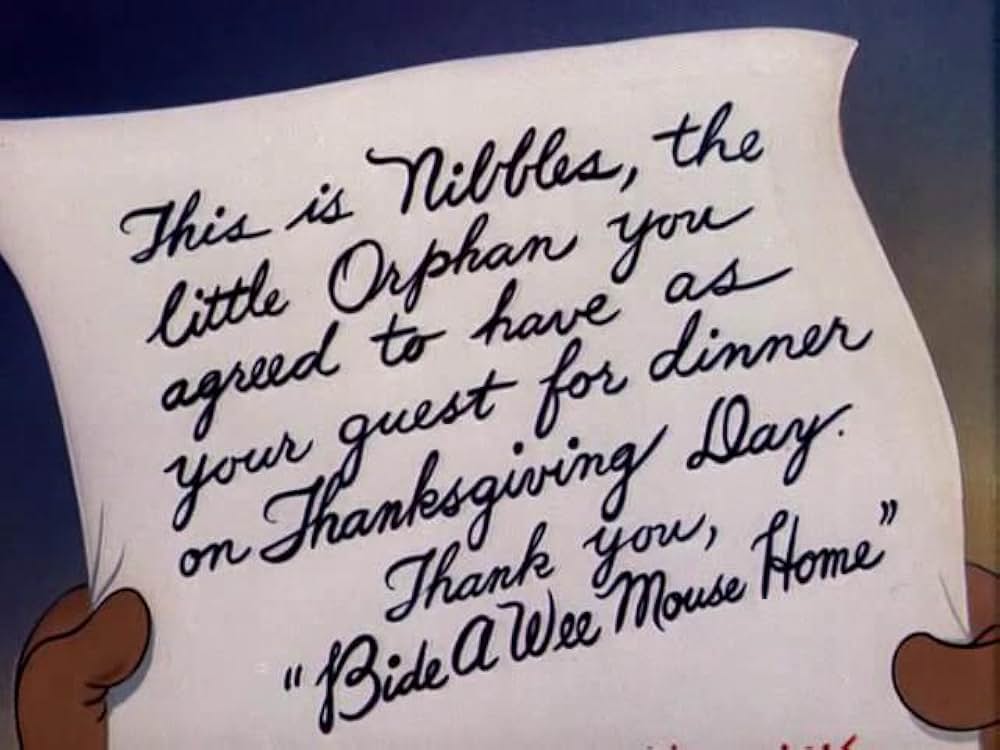 This is Nibbles, the
little Orphan you
agreed to have as
your guest for dinner
on Thanksgiving Day.
Thank you,
"Bide A Wee Mouse Home"